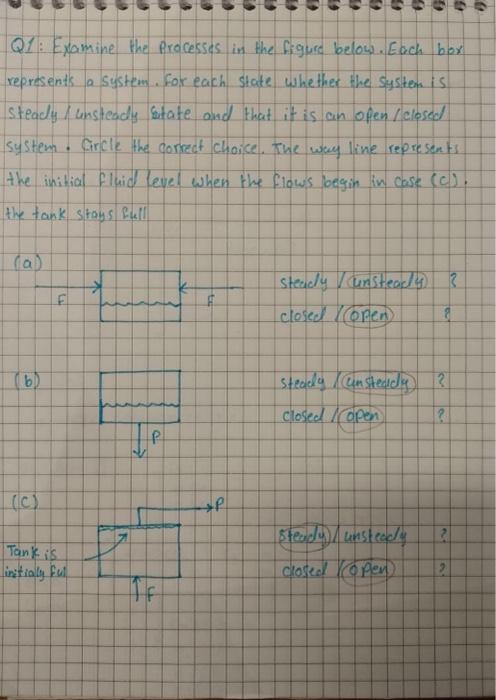 Q1: Examine the Processes in the figure below. Each box
represents a system. for each state whether the system is
steady / unsteady state and that it is an open / closed
system. Circle the correct choice. The way line represents
the initial fluid level when the flows begin in case (c).
the tank stays full
(a)
F
F
steady / unsteady ?
closed / open ?
(b)
P
steady / unsteady ?
closed / open ?
(C)
P
Tank is
initialy ful
F
steady / unsteady ?
closed / open ?